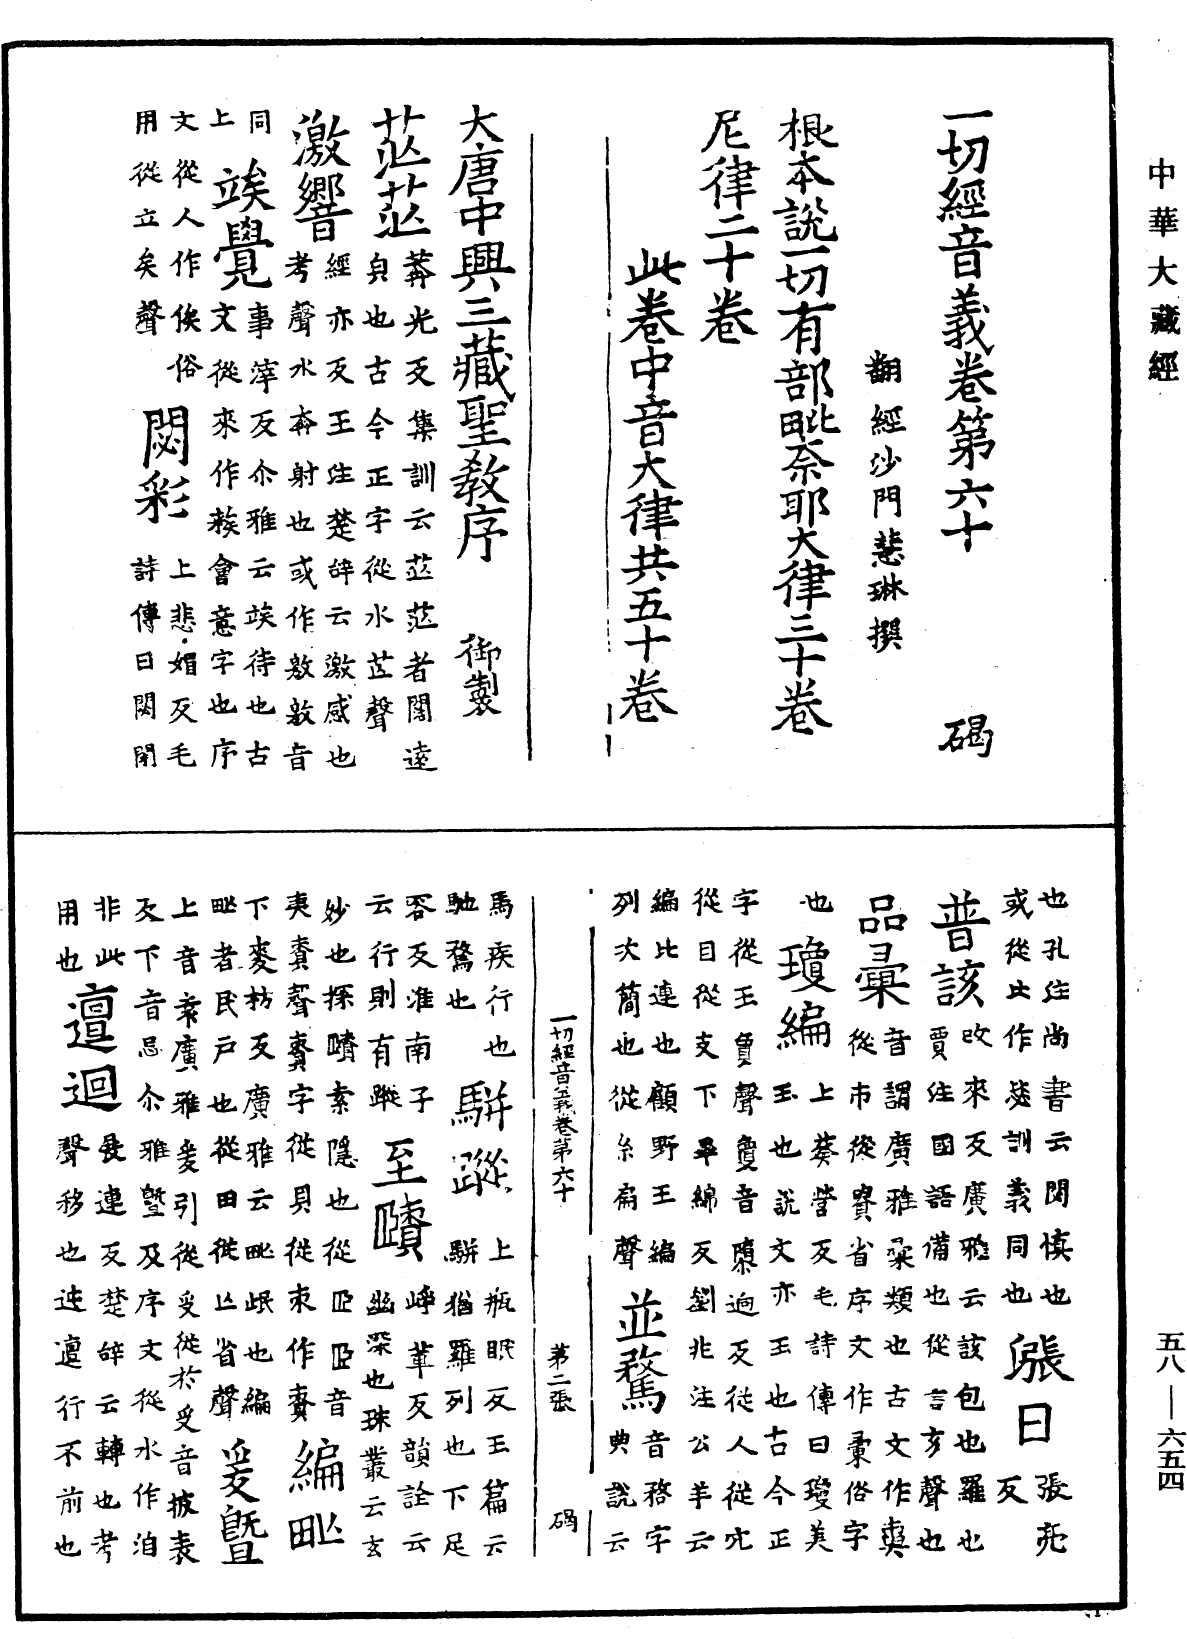 中華大藏經
一切經音義卷第六十 碣
翻經沙門慧琳撰
根本說一切有部毗奈耶大律三十卷
尼律二十卷
此卷中音大律共五十卷
大唐中興三藏聖教序 御製
茫茫 莽光反集訓云茫茫者闊遠
皃也古今正字從水芒聲
激響 經亦反王注楚辞云激感也
考聲水奔射也或作敫敫音
同
上 竢覺 事滓反尒雅云竢待也古
文從來作䅗會意字也序
文從人作俟俗
用從立矣聲 閟彩 上悲媚反毛
詩傳曰閟閉
也孔注尚書云閟慎也
或從比作毖訓義同也 漲日 張亮
反
普該 改來反廣雅云該包也羅也
賈注國語備也從言亥聲也
品彚 音謂廣雅彚類也古文作㚖
從巿從㝯省序文作彙俗字
也 瓊編 上葵營反毛詩傳曰瓊美
玉也說文亦玉也古今正
字從玉敻聲敻音隳迥反從人從穴
從目從支下卑綿反劉兆注公羊云
編比連也顧野王編
列次簡也從糸扁聲 並騖 音務字
典說云
一切經音義卷第六十 第二張 碣
馬疾行也
馳騖也 駢蹤 上瓶眠反玉篇云
駢猶羅列也下足
容反淮南子
云行則有蹤 至賾 崢革反韻詮云
幽深也珠叢云玄
妙也探賾索隱也從𦣞𦣞音
夷責聲責字從貝從朿作責 編甿
下麥枋反廣雅云甿氓也編
甿者民戶也從田從亡省聲 爰曁
上音袁廣雅爰引從𠬪從於𠬪音披表
反下音忌尒雅曁及序文從水作洎
非此
用也 邅迴 展連反楚辞云轉也考
聲移也迍邅行不前也
五八—六五四